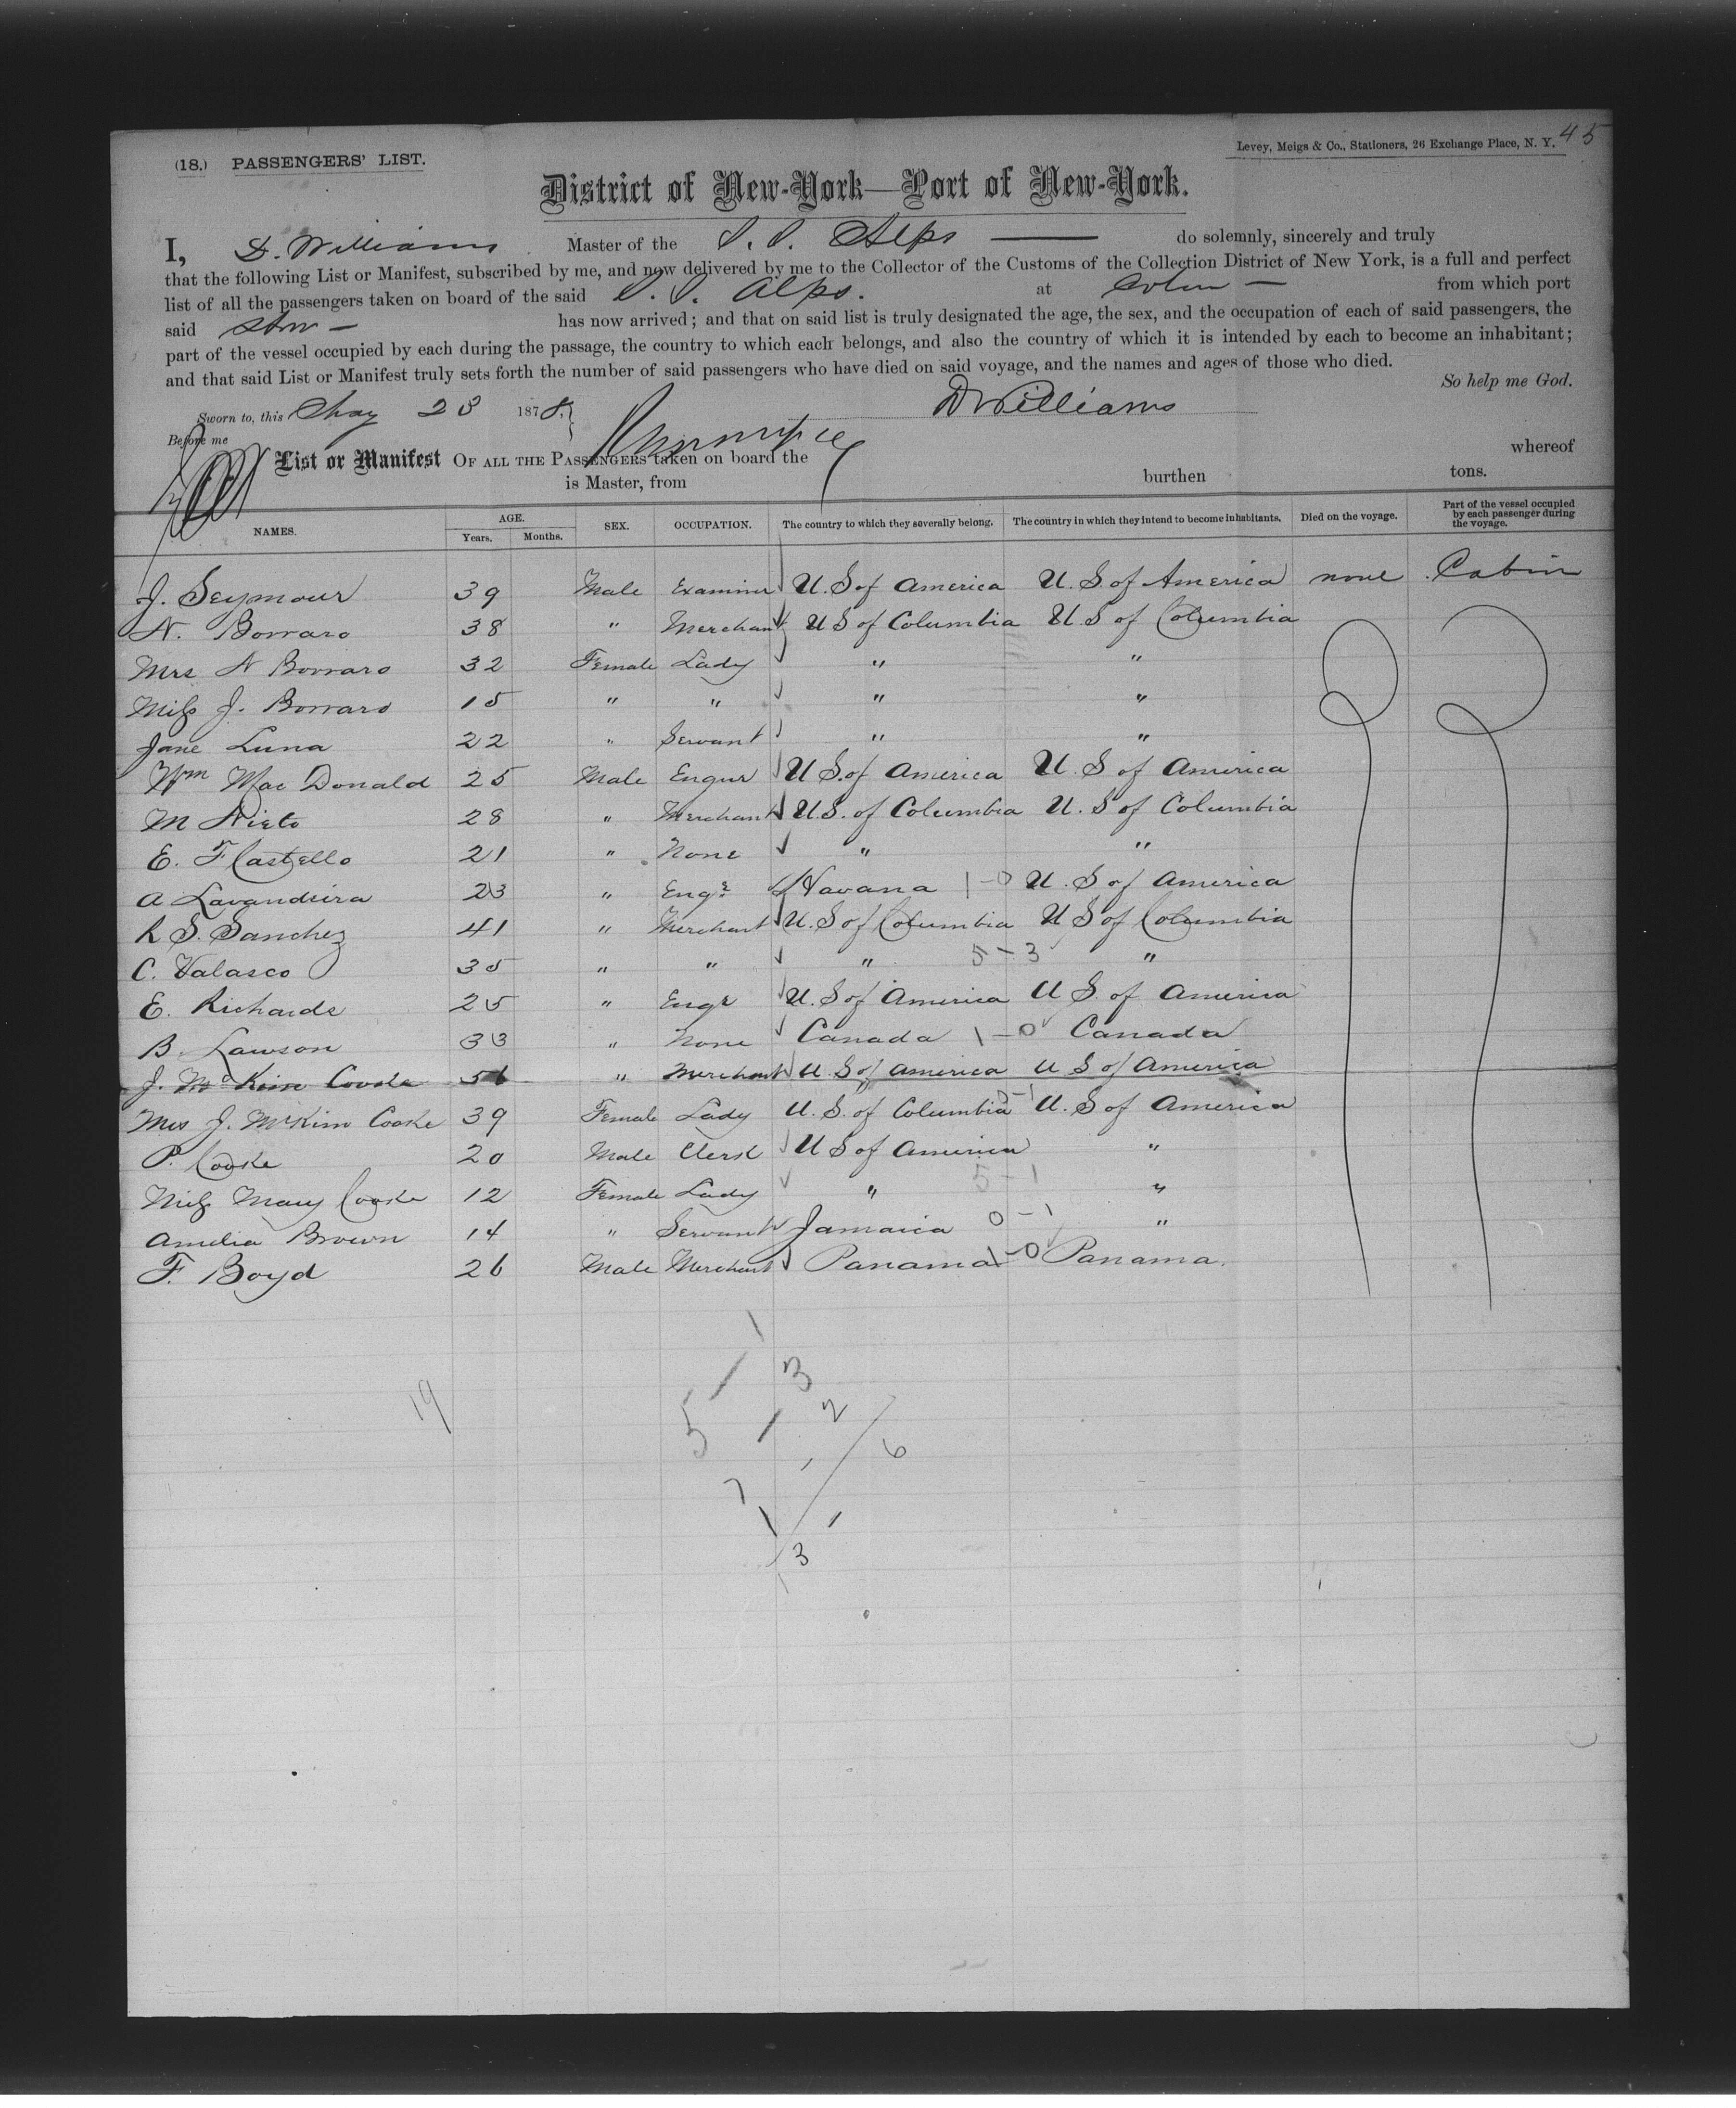 45
Levey, Meigs & Co., Stationers, 26 Exchange Place, N. Y.
(18.) PASSENGERS' LIST.
District of New-York—Port of New-York.
I, D. Williams Master of the S. S. Alps do solemnly, sincerely and truly
that the following List or Manifest, subscribed by me, and now delivered by me to the Collector of the Customs of the Collection District of New York, is a full and perfect
list of all the passengers taken on board of the said S. S. Alps. at Colon — from which port
said Stmr — has now arrived; and that on said list is truly designated the age, the sex, and the occupation of each of said passengers, the
part of the vessel occupied by each during the passage, the country to which each belongs, and also the country of which it is intended by each to become an inhabitant;
and that said List or Manifest truly sets forth the number of said passengers who have died on said voyage, and the names and ages of those who died.
So help me God.
Sworn to, this May 23 1878, D Williams
Before me
List or Manifest OF ALL THE PASSENGERS taken on board the whereof
is Master, from burthen tons.
NAMES. AGE. Years. Months. SEX. OCCUPATION. The country to which they severally belong. The country in which they intend to become inhabitants. Died on the voyage. Part of the vessel occupied by each passenger during the voyage.
J. Seymour 39 Male Examiner U. S of America U. S. of America none Cabin
N. Borraro 38 " Merchant U S of Columbia U. S of Columbia
Mrs N Borraro 32 Female Lady " "
Miss J. Borraro 15 " " " "
Jane Luna 22 " Servant " "
Wm Mac Donald 25 Male Engur U S. of America U. S of America
M Nieto 28 " Merchant U. S. of Columbia U. S of Columbia
E. F Castello 21 " None " "
A Lavandeira 23 " Engr Havana 1-0 U. S of America
R S. Sanchez 41 " Merchant U. S of Columbia U S of Columbia
C. Valasco 35 " " " 5-3 "
E. Richards 25 " Engr U. S of America U S. of America
B. Lawson 33 " None Canada 1-0 Canada
J. McKim Cooke 56 " Merchant U. S of America U S of America
Mrs J. McKim Cooke 39 Female Lady U. S. of Columbia U. S of America
P. Cooke 20 Male Clerk U S of America "
Miss Mary Cooke 12 Female Lady " 5-1 "
Amelia Brown 14 " Servant Jamaica 0-1 "
F. Boyd 26 Male Merchant Panama 1-0 Panama.
1
3
19
5
2
6
3